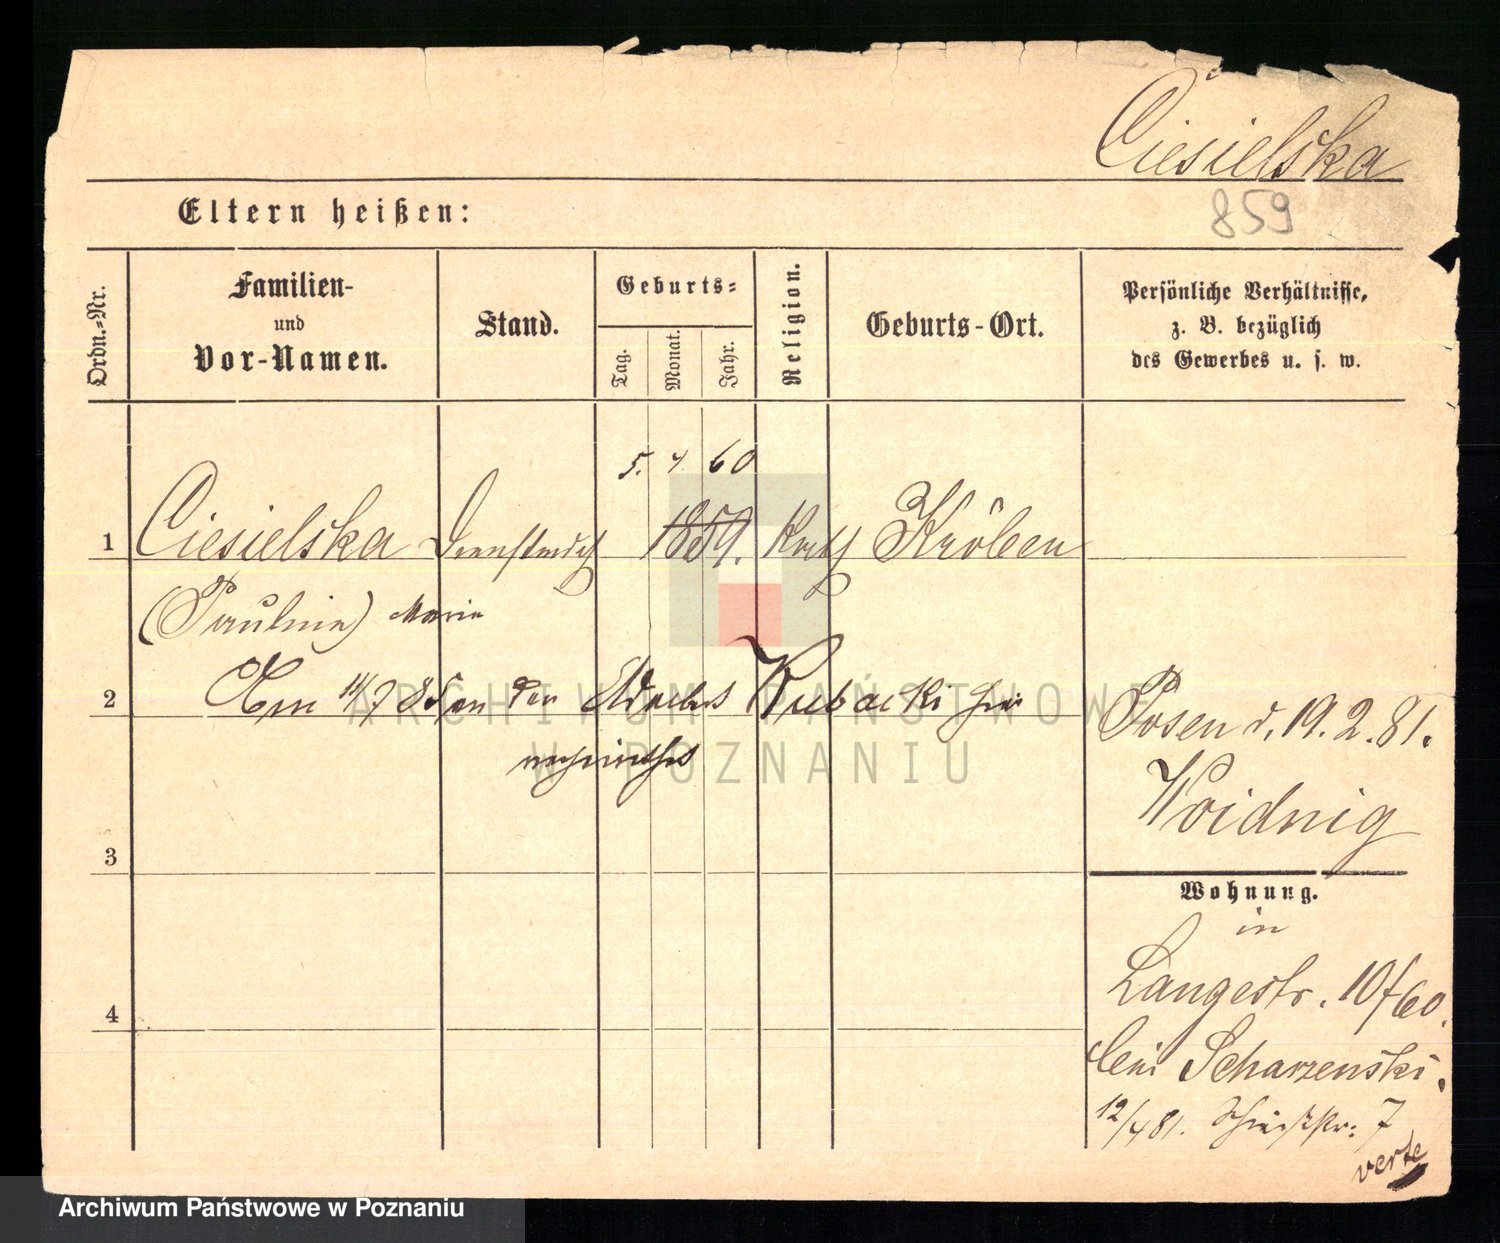 Ciesielska
859
Eltern heißen:
Ordn.=Nr.
Familien-
und
Vor-Namen.
Stand.
Geburts=
Tag.
Monat.
Jahr.
Religion.
Geburts-Ort.
Persönliche Verhältnisse,
z. B. bezüglich
des Gewerbes u. s. w.
5. 4. 60
1 Ciesielska 1859. Kath Kröben
(Pauline) Marie
2 Am 11/7 85 den Kubacki hier
Posen d. 19. 2. 81.
Woidnig
3
Wohnung.
in
Langestr. 10/60.
4
bei Scharzenski.
12/4 81. 7
verte
ARCHIWUM PAŃSTWOWE
W POZNANIU
Archiwum Państwowe w Poznaniu